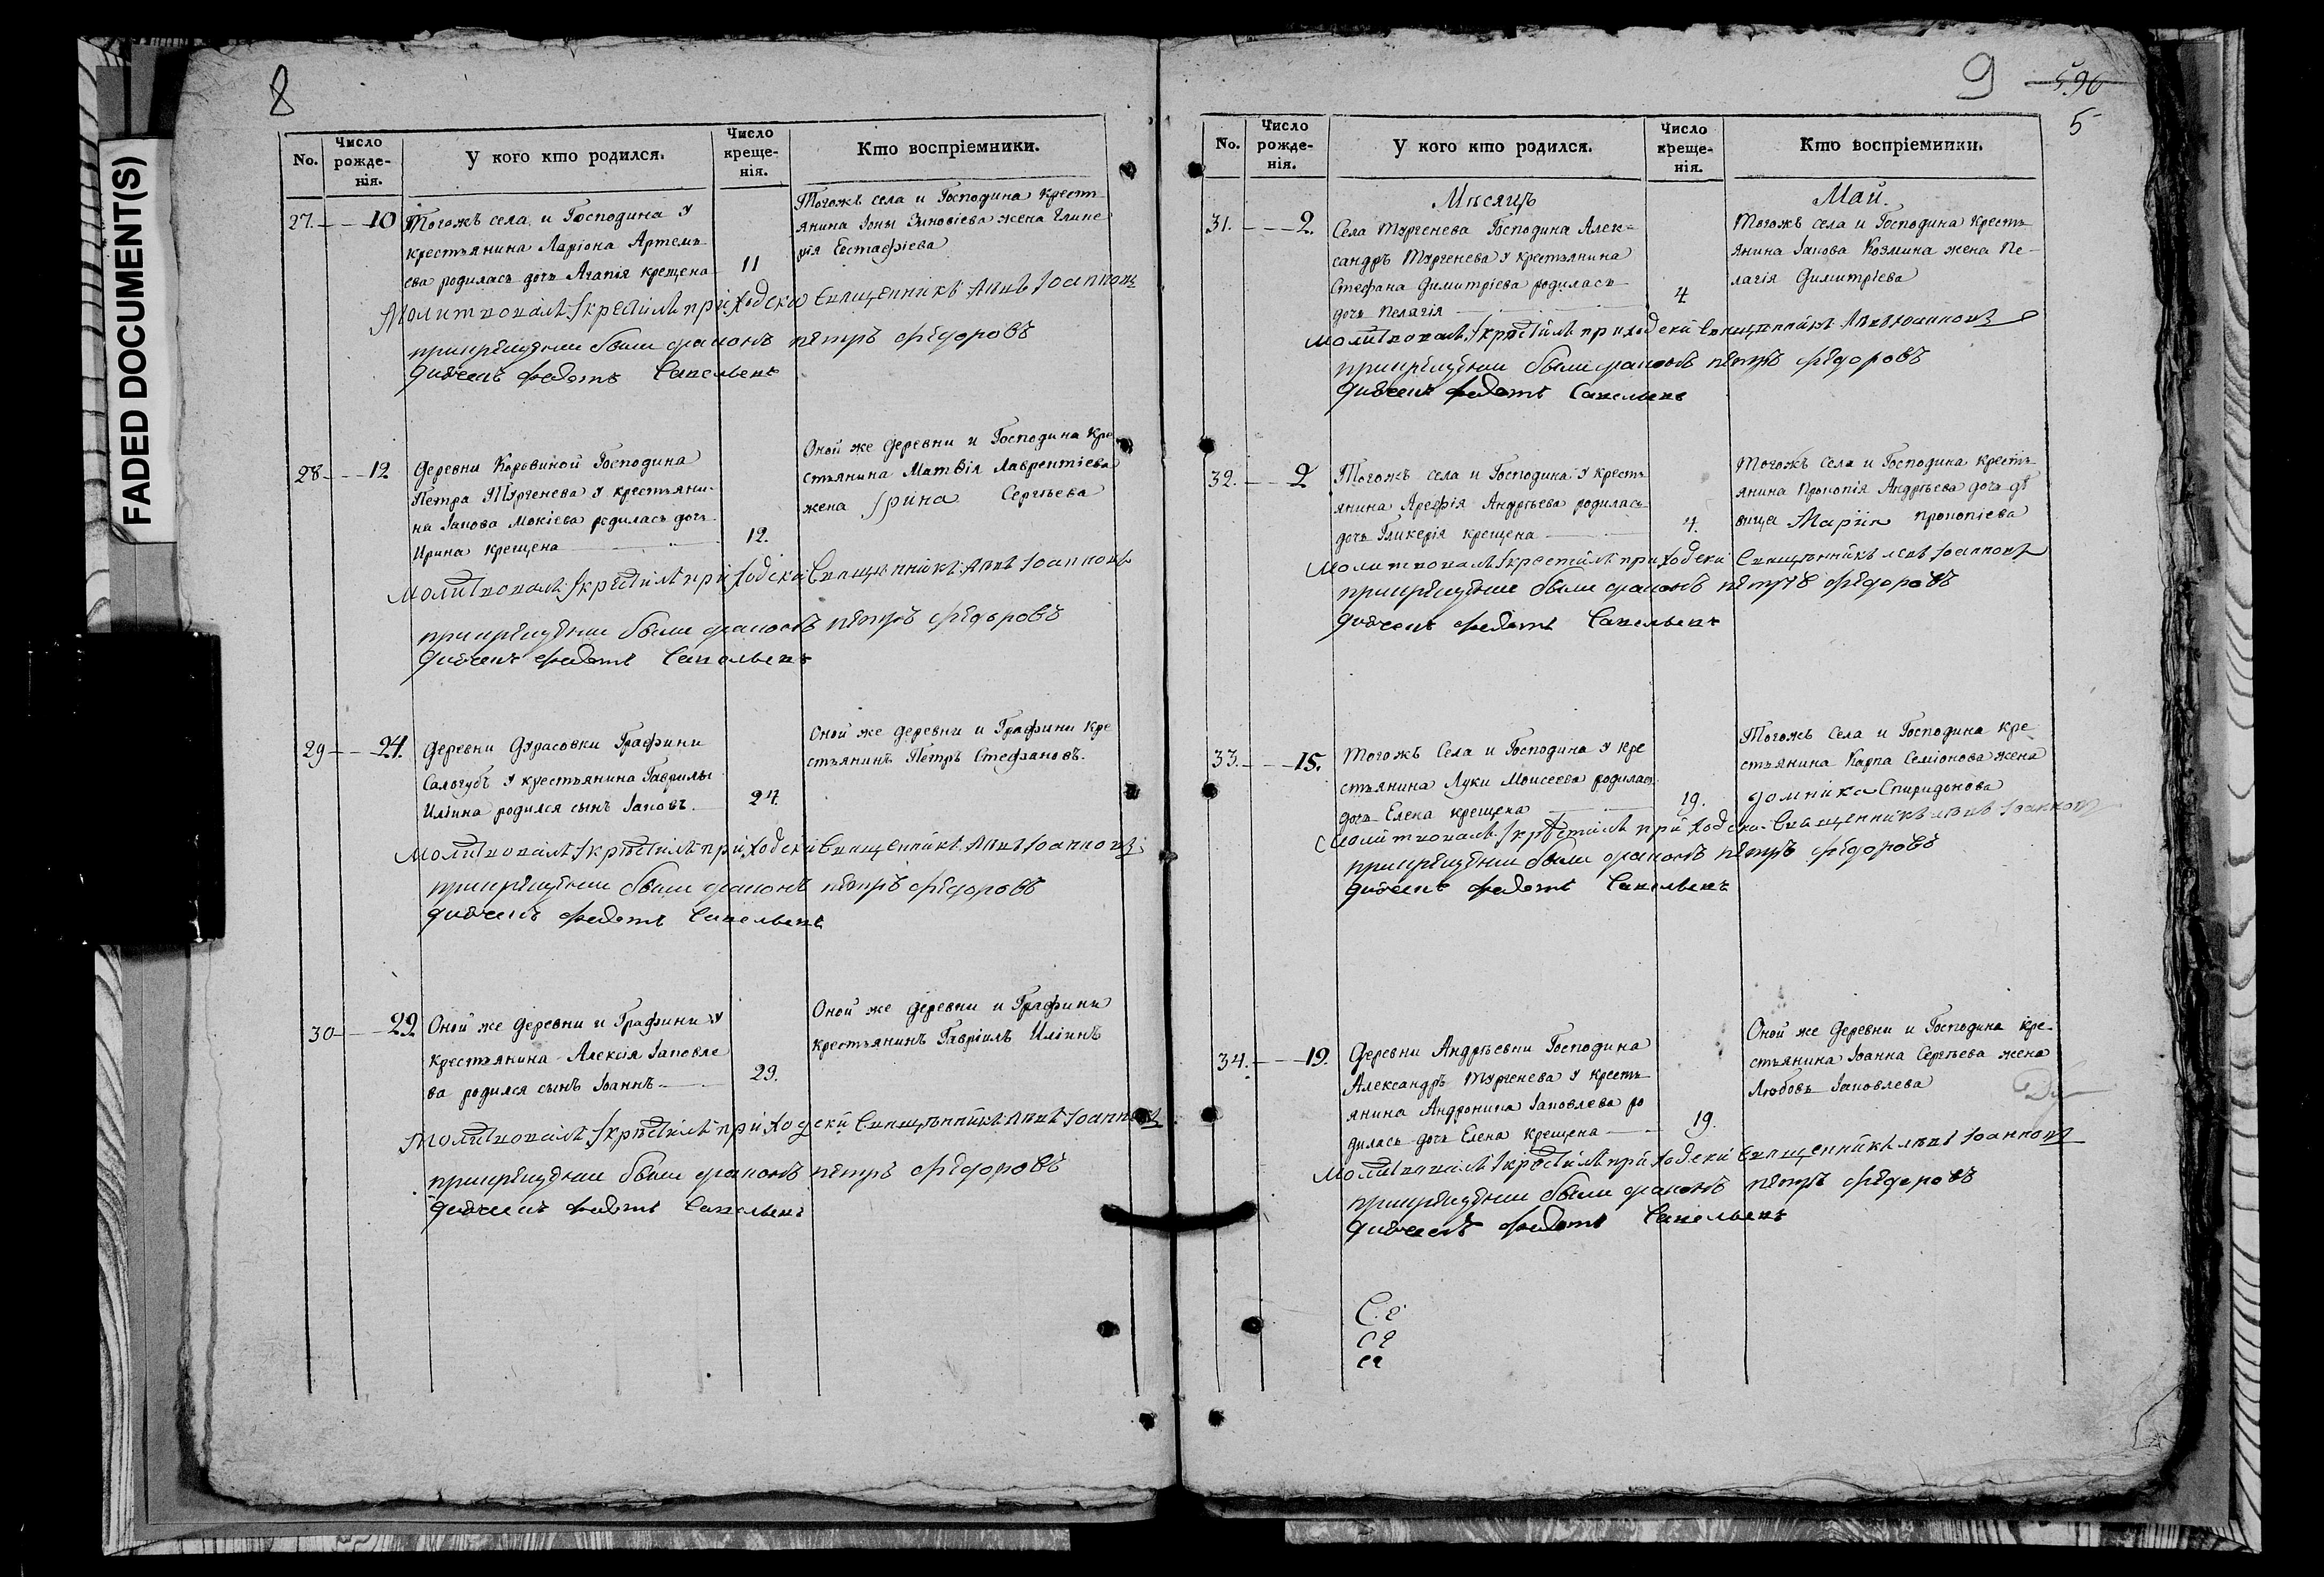 FADED DOCUMENT(S)
8
No.
Число рожде-нія.
У кого кто родился.
Число креще-нія.
Кто воспріемники.
27. 10
Тогожъ села и Господина у
крестьянина Ларіона Артемь
ева родилась дочь Агапія крещена
11
Тогожъ села и Господина крест
янина Іоны Зиновіева жена Глике
рія Естафіева
Молитвовалъ и крестилъ приходски Священникъ Левъ Іоанновъ
прикрещении были дьяконъ петръ Федоровъ
дьячекъ федотъ Савельевъ
28 12
Деревни Коровиной Господина
Петра Тургенева у крестьяни-
на Іакова Мокіева родилась дочь
Ирина крещена
12.
Оной же Деревни и Господина кре
стьянина Матвія Лаврентіева
жена Ірина Сергѣева
Молитвовалъ и крестилъ приходски Священникъ Левъ Іоанновъ
прикрещении были дьяконъ петръ Федоровъ
дьячекъ федотъ Савельевъ
29 24.
Деревни Дурасовки Графини
Салогубъ у крестьянина Гаврилы
Иліина родился сынъ Іаковъ
24.
Оной же деревни и Графини кре
стьянинъ Петръ Стефановъ.
Молитвовалъ и крестилъ приходски Священникъ Левъ Іоанновъ
прикрещении были дьяконъ петръ Федоровъ
дьячекъ федотъ Савельевъ
30 29
Оной же Деревни и Графини у
крестьянина Алексія Іаковле
ва родился сынъ Іоаннъ
29.
Оной же Деревни и Графини
крестьянинъ Гавріилъ Иліинъ
Молитвовалъ и крестилъ приходски Священникъ Левъ Іоанновъ
прикрещении были дьяконъ петръ Федоровъ
дьячекъ федотъ Савельевъ
9
5
No.
Число рожде-нія.
У кого кто родился.
Число креще-нія.
Кто воспріемники.
Мѣсяцъ Май.
31. 2
Села Тургенева Господина Алек-
сандръ Тургенева у крестьянина
Стефана Димитріева родилась
дочь Пелагія
4
Тогожъ села и Господина Кресть
янина Іакова Козмина жена Пе-
лагія Димитріева
Молитвовалъ и крестилъ приходски Священникъ Левъ Іоанновъ
прикрещении были дьяконъ петръ Федоровъ
дьячекъ федотъ Савельевъ
32. 2
Тогожъ села и Господина у кресть
янина Арефія Андрѣева родилась
дочь Гликерія крещена
4.
Тогожъ села и Господина кресть
янина Прокопія Андрѣева дочь дѣ
вица Марія Прокопіева
Молитвовалъ и крестилъ приходски Священникъ Левъ Іоанновъ
прикрещении были дьяконъ петръ Федоровъ
дьячекъ федотъ Савельевъ
33. 15.
Тогожъ Села и Господина у кре
стьянина Луки Моисеева родилась
дочь Елена крещена
19.
Тогожъ Села и Господина кре
стьянина Карпа Семіонова жена
домника Спиридонова
Молитвовалъ и крестилъ приходски Священникъ Левъ Іоанновъ
прикрещении были дьяконъ петръ Федоровъ
дьячекъ федотъ Савельевъ
34. 19.
Деревни Андрѣевки Господина
Александръ Тургенева у кресть
янина Андроника Іаковлева ро
дилась дочь Елена крещена
19.
Оной же Деревни и Господина кре-
стьянина Іоанна Сергѣева жена
Любовь Іаковлева
Молитвовалъ и крестилъ приходски Священникъ Левъ Іоанновъ
прикрещении были дьяконъ петръ Федоровъ
дьячекъ федотъ Савельевъ